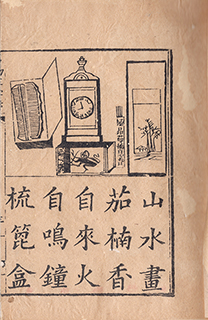 山水畫
茄楠香
自來火
自鳴鐘
梳篦盒